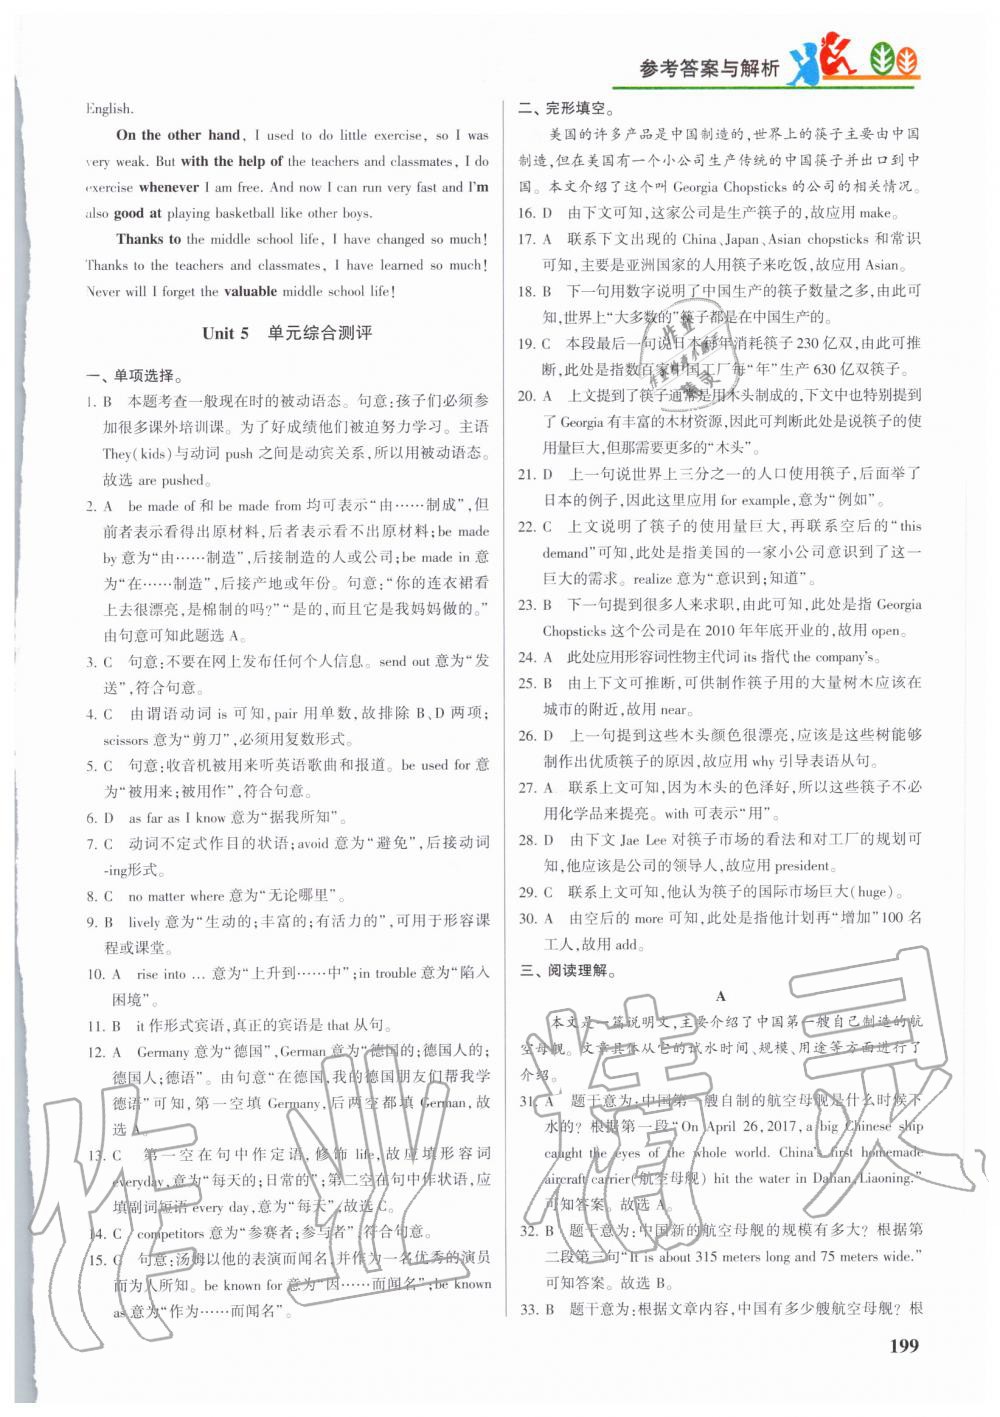 参考答案与解析
English.
On the other hand, I used to do little exercise, so I was
very weak. But with the help of the teachers and classmates, I do
exercise whenever I am free. And now I can run very fast and I'm
also good at playing basketball like other boys.
Thanks to the middle school life, I have changed so much!
Thanks to the teachers and classmates, I have learned so much!
Never will I forget the valuable middle school life!
Unit 5 单元综合测评
一、单项选择。
1. B 本题考查一般现在时的被动语态。句意:孩子们必须参
加很多课外培训课。为了好成绩他们被迫努力学习。主语
They(kids)与动词 push 之间是动宾关系,所以用被动语态。
故选 are pushed。
2. A be made of 和 be made from 均可表示“由……制成”,但
前者表示看得出原材料,后者表示看不出原材料;be made
by 意为“由……制造”,后接制造的人或公司;be made in 意
为“在……制造”,后接产地或年份。句意:“你的连衣裙看
上去很漂亮,是棉制的吗?”“是的,而且它是我妈妈做的。”
由句意可知此题选 A。
3. C 句意:不要在网上发布任何个人信息。send out 意为“发
送”,符合句意。
4. C 由谓语动词 is 可知,pair 用单数,故排除 B、D 两项;
scissors 意为“剪刀”,必须用复数形式。
5. C 句意:收音机被用来听英语歌曲和报道。be used for 意
为“被用来;被用作”,符合句意。
6. D as far as I know 意为“据我所知”。
7. C 动词不定式作目的状语;avoid 意为“避免”,后接动词
-ing形式。
8. C no matter where 意为“无论哪里”。
9. B lively 意为“生动的;丰富的;有活力的”,可用于形容课
程或课堂。
10. A rise into … 意为“上升到……中”;in trouble 意为“陷入
困境”。
11. B it 作形式宾语,真正的宾语是 that 从句。
12. A Germany 意为“德国”,German 意为“德国的;德国人的;
德国人;德语”。由句意“在德国,我的德国朋友们帮我学
德语”可知,第一空填 Germany,后两空都填 German,故
选 A。
13. C 第一空在句中作定语,修饰 life,故应填形容词
everyday,意为“每天的;日常的”;第二空在句中作状语,应
填副词短语 every day,意为“每天”,故选 C。
14. C competitors 意为“参赛者;参与者”,符合句意。
15. C 句意:汤姆以他的表演而闻名,并作为一名优秀的演员
而为人所知。be known for 意为“因……而闻名”,be known
as 意为“作为……而闻名”。
二、完形填空。
美国的许多产品是中国制造的,世界上的筷子主要由中国
制造,但在美国有一个小公司生产传统的中国筷子并出口到中
国。本文介绍了这个叫 Georgia Chopsticks 的公司的相关情况。
16. D 由下文可知,这家公司是生产筷子的,故应用 make。
17. A 联系下文出现的 China、Japan、Asian chopsticks 和常识
可知,主要是亚洲国家的人用筷子来吃饭,故应用 Asian。
18. B 下一句用数字说明了中国生产的筷子数量之多,由此可
知,世界上“大多数的”筷子都是在中国生产的。
19. C 本段最后一句说日本每年消耗筷子 230 亿双,由此可推
断,此处指数百家中国工厂每“年”生产 630 亿双筷子。
20. A 上文提到了筷子通常是用木头制成的,下文中也特别提到
了 Georgia 有丰富的木材资源,因此可判断此处是说筷子的使
用量巨大,但那需要更多的“木头”。
21. D 上一句说世界上三分之一的人口使用筷子,后面举了
日本的例子,因此这里应用 for example,意为“例如”。
22. C 上文说明了筷子的使用量巨大,再联系空后的“this
demand”可知,此处是指美国的一家小公司意识到了这一
巨大的需求。realize 意为“意识到;知道”。
23. B 下一句提到很多人来求职,由此可知,此处是指 Georgia
Chopsticks 这个公司是在 2010 年年底开业的,故用 open。
24. A 此处应用形容词性物主代词 its 指代 the company's。
25. B 由上下文可推断,可供制作筷子用的大量树木应该在
城市的附近,故应用 near。
26. D 上一句提到这些木头颜色很漂亮,应该是这些树能够
制作出优质筷子的原因,故应用 why 引导表语从句。
27. A 联系上文可知,因为木头的色泽好,所以这些筷子不必
用化学品来提亮。with 可表示“用”。
28. D 由下文 Jae Lee 对筷子市场的看法和对工厂的规划可
知,他应该是公司的领导人,故应用 president。
29. C 联系上文可知,他认为筷子的国际市场巨大(huge)。
30. A 由空后的 more 可知,此处是指他计划再“增加”100 名
工人,故用 add。
三、阅读理解。
A
本文是一篇说明文,主要介绍了中国第一艘自己制造的航
空母舰。文章具体从它的试水时间、规模、用途等方面进行了
介绍。
31. A 题干意为:中国第一艘自制的航空母舰是什么时候下
水的? 根据第一段“On April 26, 2017, a big Chinese ship
caught the eyes of the whole world. China's first homemade
aircraft carrier(航空母舰) hit the water in Dalian, Liaoning.”
可知答案。故选 A。
32. B 题干意为:中国新的航空母舰的规模有多大? 根据第
二段第三句“It is about 315 meters long and 75 meters wide.”
可知答案。故选 B。
33. B 题干意为:根据文章内容,中国有多少艘航空母舰? 根
199
作业精灵